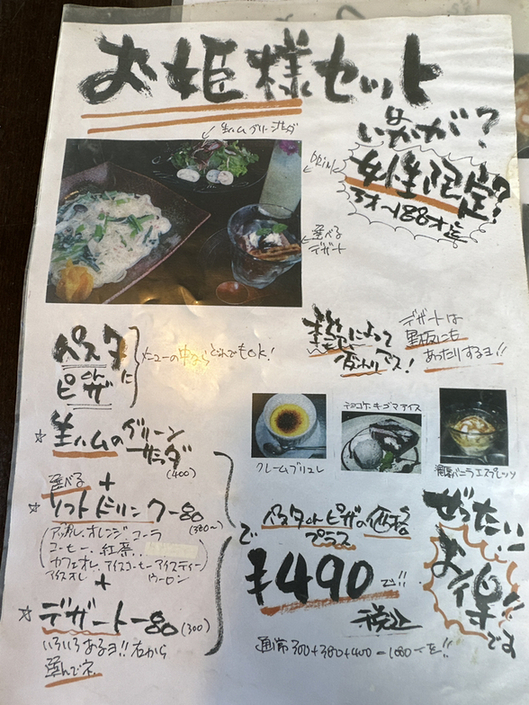 お姫様セット
いかが?
女性限定?
3才〜188才迄
生ハムグリーンサラダ
DRINK
選べる
デザート
パスタ
ピザ
メニューの中からどれでもOK!
よって
変わりマス!
デザートは
黒板にも
あったりするヨ!!
生ハムのグリーン
サラダ
(400)
+
選べる
ソフトドリンク
(380〜)
アップル、オレンジ、コーラ
コーヒー、紅茶
カフェオレ、アイスコーヒー、アイスティー
アイスオレ、ウーロン
+
デザート
(300)
いろいろあるヨ!!右から
選んでネ
クレームブリュレ
チョコケーキゴマアイス
バニラエスプレッソ
で
パスタorピザの価格
プラス
¥490で!!
税込
通常300+380+400=1080デス!!
ぜったい!
お得です